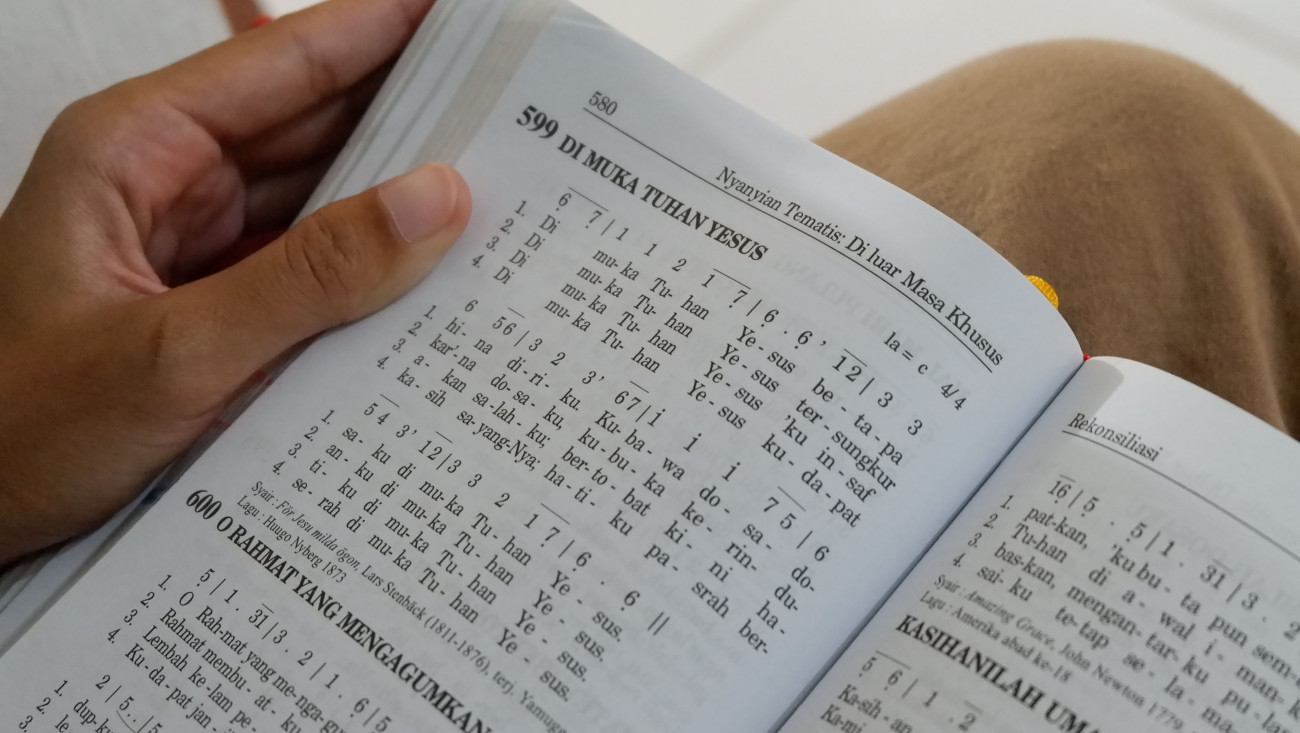 580
Nyanyian Tematis: Di luar Masa Khusus
599 DI MUKA TUHAN YESUS
la = c 4/4
6 7 | 1 1 2 1 7 | 6 . 6 , 1 2 | 3 3
1. Di mu- ka Tu- han Ye - sus be - ta - pa
2. Di mu- ka Tu- han Ye - sus ter - sungkur
3. Di mu- ka Tu- han Ye - sus 'ku in - saf
4. Di mu- ka Tu- han Ye - sus ku - da - pat
6 56 | 3 2 3 ' 67 | i i i 7 5 | 6
1. hi- na di- ri- ku. Ku- ba- wa do - sa - do-
2. kar'-na do- sa- ku, ku- bu- ka ke - rin- du-
3. a - kan sa-lah - ku; ber- to - bat ki - ni ha -
4. ka - sih sa-yang-Nya; ha - ti - ku pa - srah ber-
5 4 3 ' 1 2 | 3 3 2 1 7 | 6 . 6 ||
1. sa - ku di mu- ka Tu - han Ye - sus.
2. an - ku di mu- ka Tu - han Ye - sus.
3. ti - ku di mu- ka Tu - han Ye - sus.
4. se - rah di mu- ka Tu - han Ye - sus.
Syair : För Jesu milda ögon, Lars Stenbäck (1811-1876), terj. Yamuge
Lagu : Huugo Nyberg 1873
600 O RAHMAT YANG MENGAGUMKAN
5 | 1 . 31 | 3 . 2 | 1 . 6 | 5
1. O Rah-mat yang me-nga-gu
2. Rahmat membu - at - ku
3. Lembah ke -lam pe -
4. Ku - da - pat jan -
2 | 5 . . | 5
1. dup-ku
2. le
3.
Rekonsiliasi
16 | 5 . 5 | 1 . 31 | 3 . 2
1. pat-kan, 'ku bu - ta pun sem-
2. Tu-han di a - wal i - man-k
3. bas-kan, mengan- tar- ku pu -lan
4. sai- ku te-tap se - la - ma-
Syair : Amazing Grace, John Newton 1779,
Lagu : Amerika abad ke-18
KASIHANILAH UMA
5 6 | 1 . 2
Ka-sih - an
Ka-mi